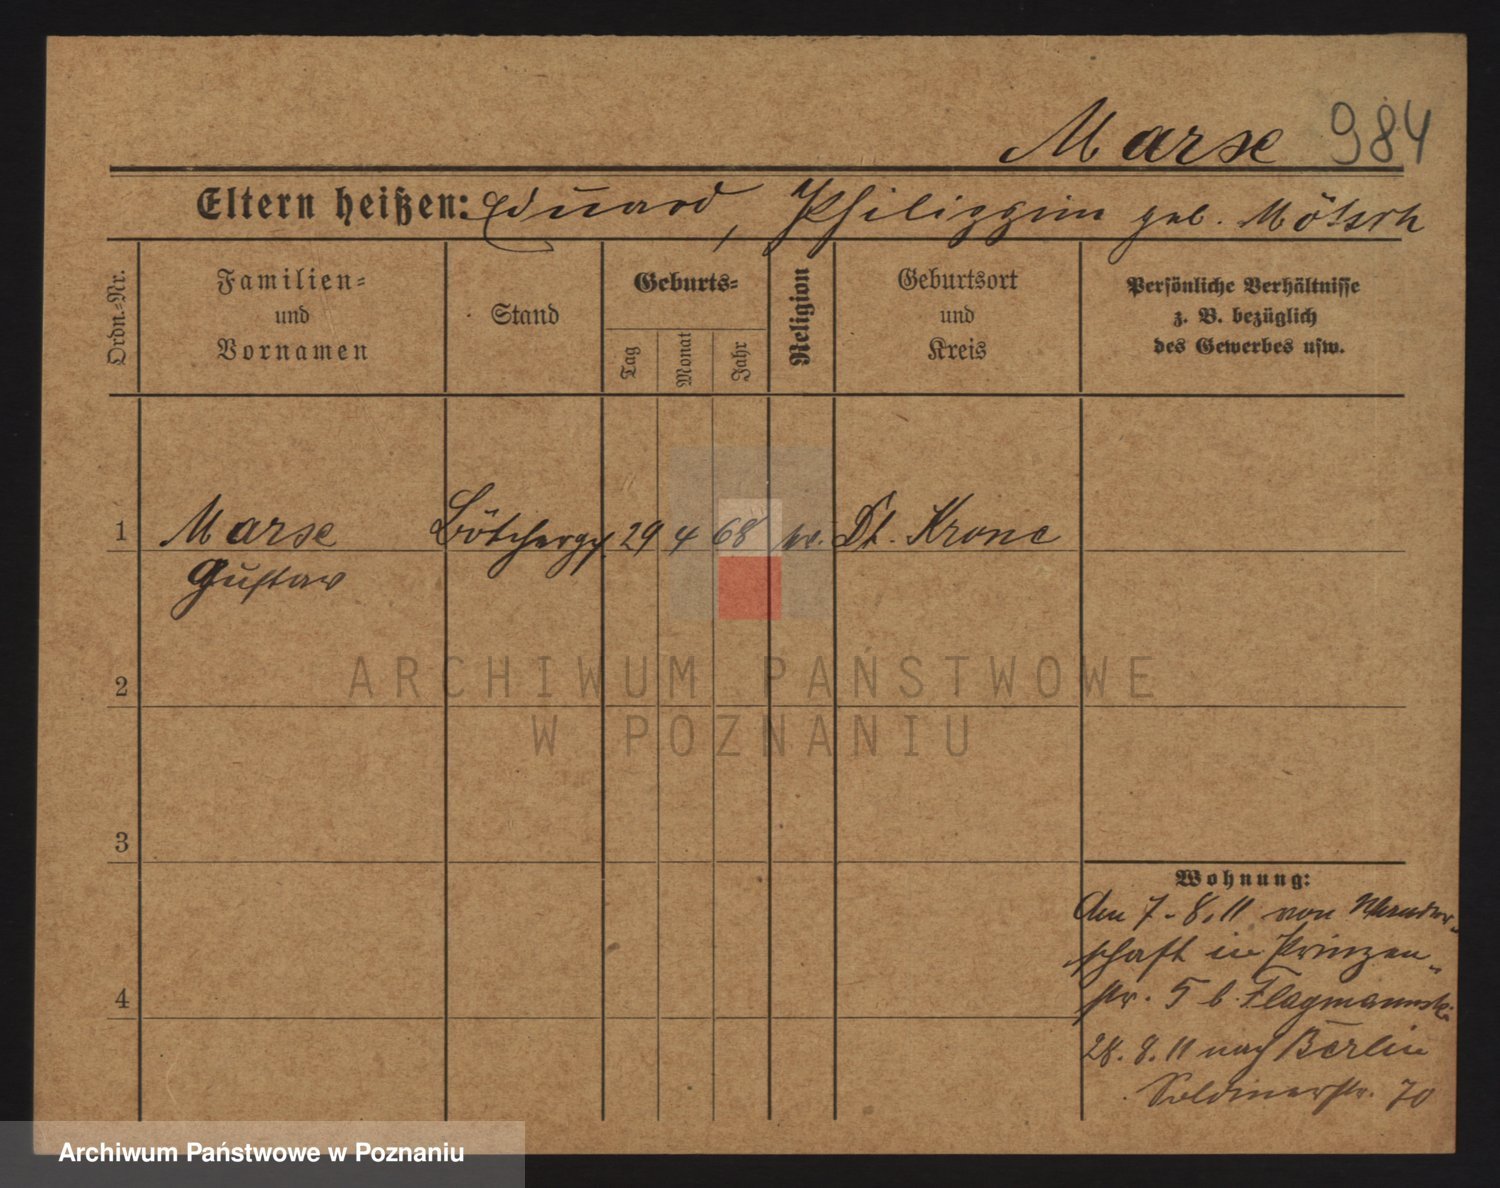 Marse 984
Eltern heißen: Eduard, Philippine geb. Mötsch
Ordn.-Nr.
Familien-
und
Vornamen
Stand
Geburts-
Tag
Monat
Jahr
Religion
Geburtsort
und
Kreis
Persönliche Verhältnisse
z. B. bezüglich
des Gewerbes usw.
1 Marse Böttcherges. 29 4 68 ev. Dt. Krone
Gustav
2
ARCHIWUM PAŃSTWOWE
W POZNANIU
3
4
Wohnung:
Am 7.8.11 von Wander-
schaft in Prinzen-
str. 5 b.
28.8.11 nach Berlin
Soldinerstr. 70
Archiwum Państwowe w Poznaniu